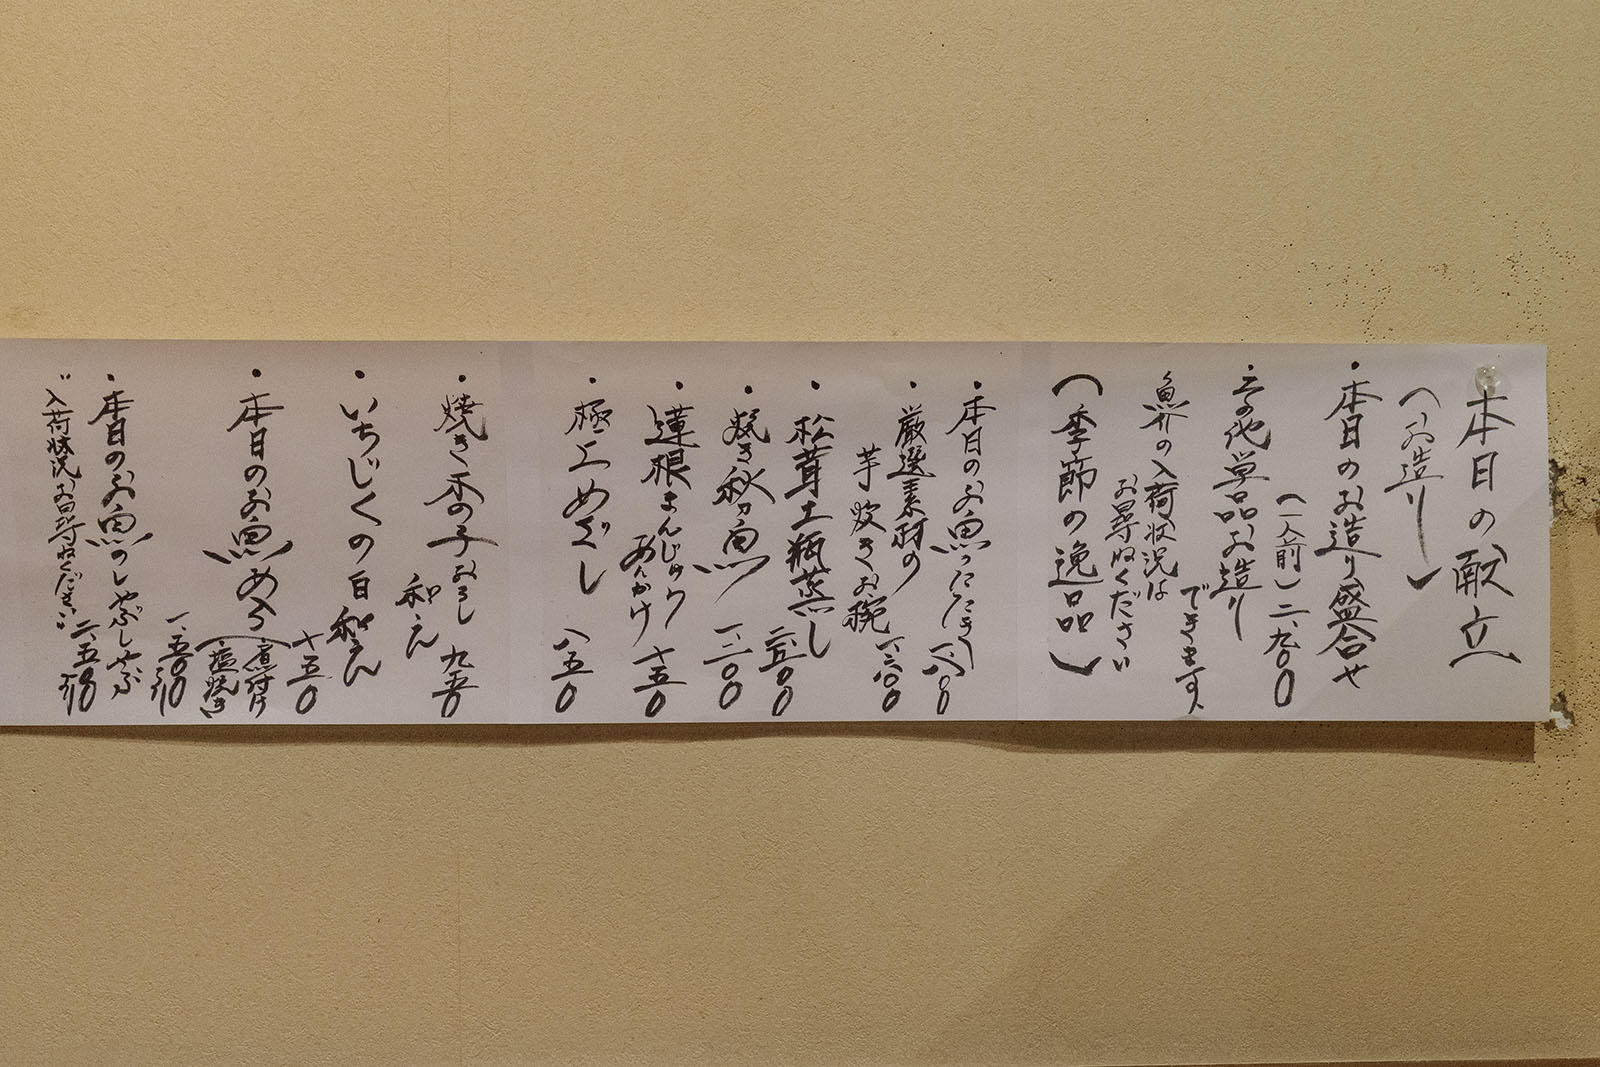 本日の献立
(お造り)
・本日のお造り盛合せ
(一人前)二、九〇〇
・その他単品お造り
できます
魚介の入荷状況は
お尋ねください
(季節の逸品)
・本日のお魚
・厳選素材の
芋炊きお椀
・松茸土瓶蒸し
・炊き秋刀魚
・蓮根まんじゅう
あんかけ
七五〇
・極上めざし
八五〇
・焼き
おろし
和え
九五〇
・いちじくの白和え
七五〇
・本日のお魚
(煮付け
塩焼き)
一、五〇〇
・本日のお魚のしゃぶしゃぶ
二、五〇〇
入荷状況お尋ねください